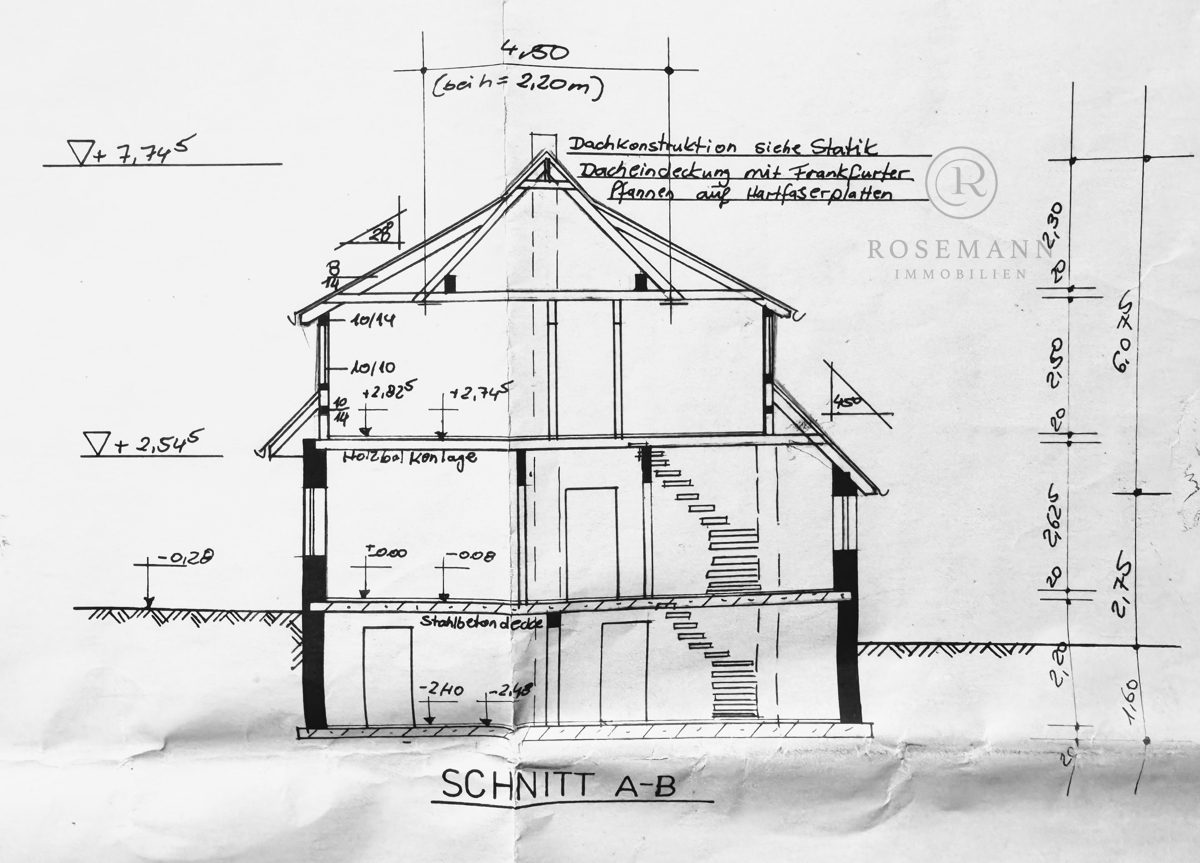 4,50
(bei h = 2,20m)
▽+ 7,74⁵
Dachkonstruktion siehe Statik
Dacheindeckung mit Frankfurter
Pfannen auf Hartfaserplatten
R
ROSEMANN
IMMOBILIEN
28
8/14
2,30
20
10/14
10/10
+2,82⁵
+2,74⁵
10/14
45°
2,50
6,075
20
▽+ 2,54⁵
Holzbalkenlage
2,625
-0,28
±0.00
-0.08
20
2,75
Stahlbetondecke
2,20
-2,40
-2,48
1,60
20
SCHNITT A-B